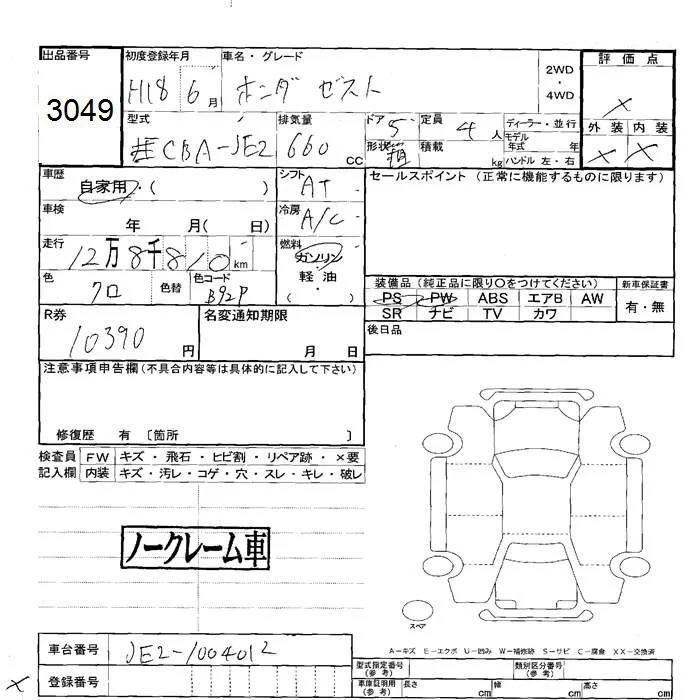 出品番号 初度登録年月 車名・グレード 2WD ・ 4WD 評価点
3049 H18 6月 ホンダ ゼスト ×
型式 排気量 ドア 5 定員 4人 ディーラー・並行 外装 内装
CBA-JE2 660cc 形状 箱 積載 kg モデル年式 年 ハンドル 左・右 × ×
車歴 自家用・( ) シフト AT セールスポイント (正常に機能するものに限ります)
車検 年 月( 日) 冷房 A/C
走行 12万8千810km 燃料 ガソリン ・ 軽油 ・ ( )
色 クロ 色替 色コード B92P
装備品 (純正品に限り○をつけてください) 新車保証書
PS PW ABS エアB AW 有・無
SR ナビ TV カワ
R券 10390円 名変通知期限 月 日 後日品
注意事項申告欄 (不具合内容等は具体的に記入して下さい)
修復歴 有 〔箇所 〕
検査員 FW キズ・飛石・ヒビ割・リペア跡・×要
記入欄 内装 キズ・汚レ・コゲ・穴・スレ・キレ・破レ
ノークレーム車
スペア
A-キズ E-エクボ U-凹み W-補修跡 S-サビ C-腐食 XX-交換済
車台番号 JE2-1004012 型式指定番号 (参考) 類別区分番号 (参考)
× 登録番号 車庫証明用 (参考) 長さ cm 幅 cm 高さ cm